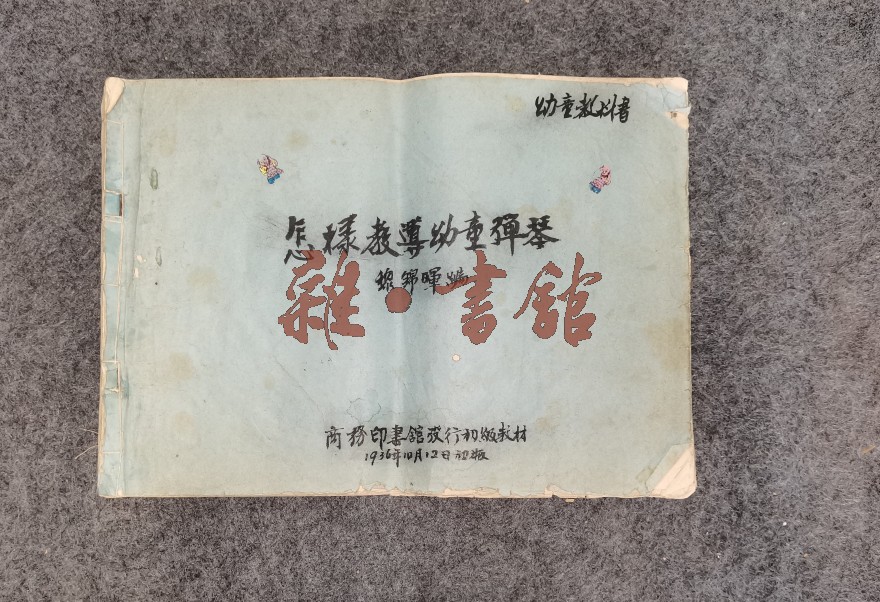 幼童教科書
怎樣教導幼童彈琴
黎錦暉編
雜·書館
商務印書館發行初級教材
1936年10月12日初版